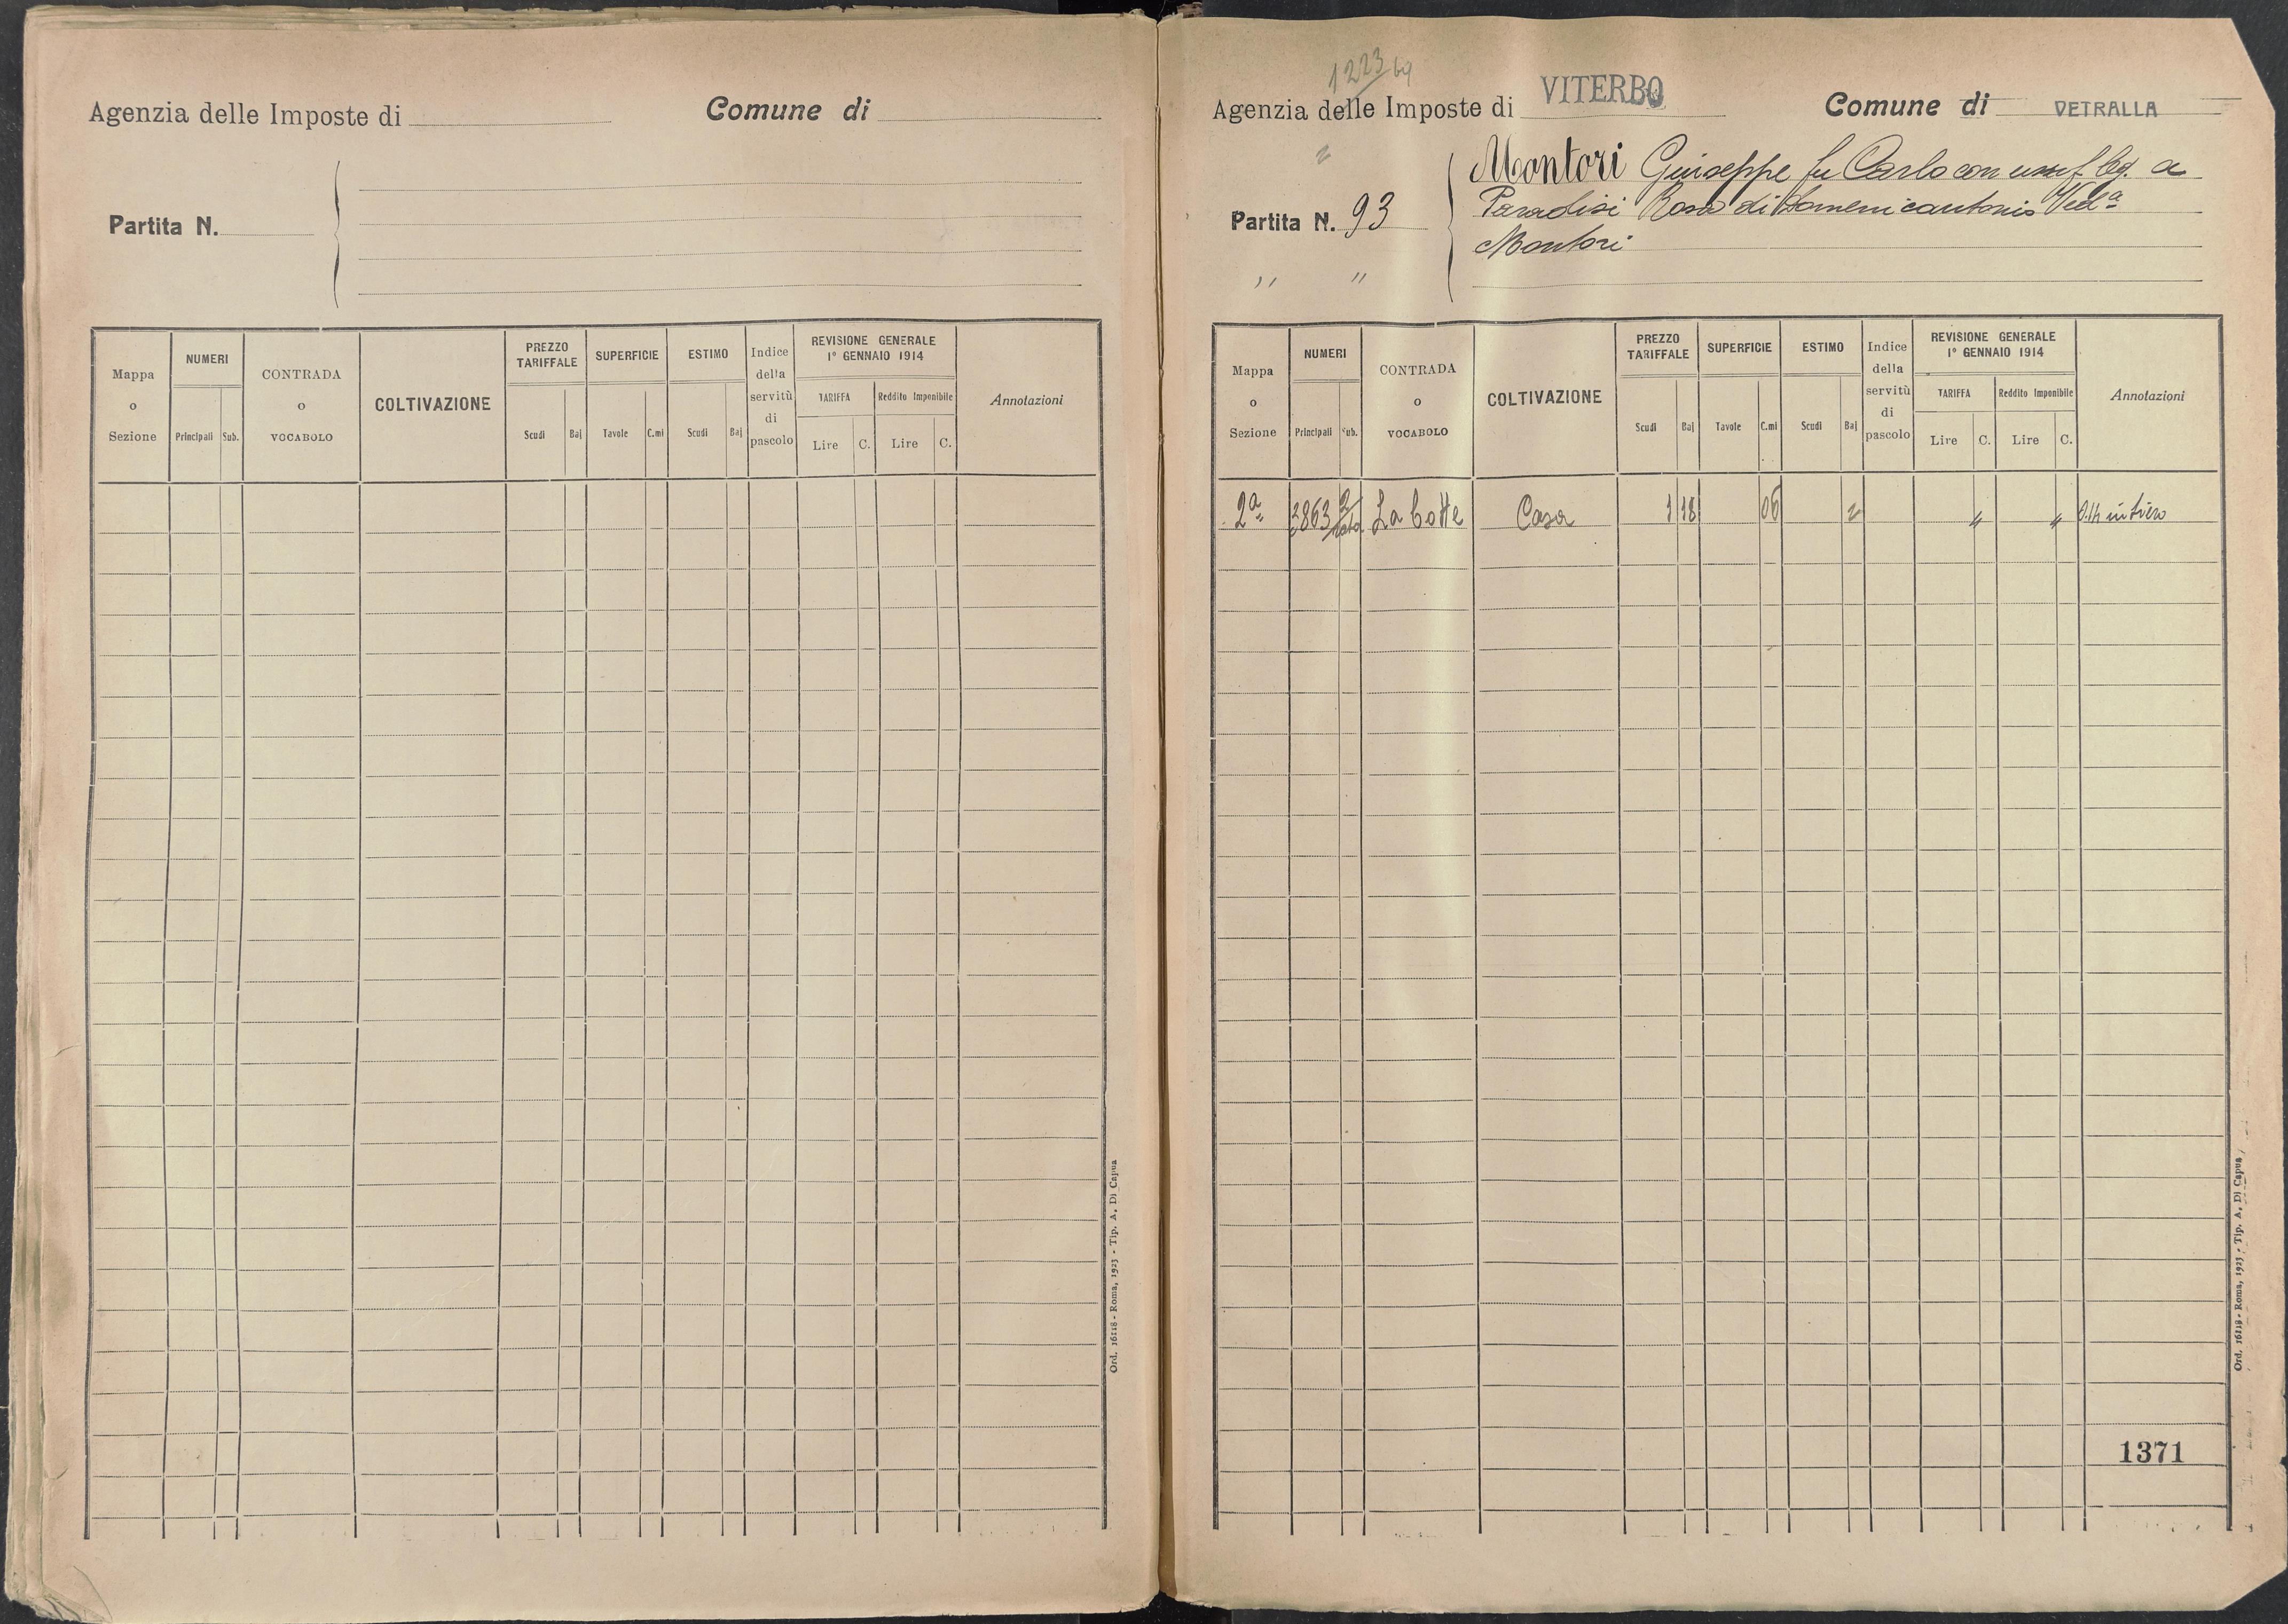 Agenzia delle Imposte di
Comune di
Partita N.
Mappa o Sezione
NUMERI
Principali Sub.
CONTRADA o VOCABOLO
COLTIVAZIONE
PREZZO TARIFFALE
Scudi Baj
SUPERFICIE
Tavole C.mi
ESTIMO
Scudi Baj
Indice della servitù di pascolo
REVISIONE GENERALE
1° GENNAIO 1914
TARIFFA
Lire C.
Reddito Imponibile
Lire C.
Annotazioni
Ord. 16118 - Roma, 1923 - Tip. A. Di Capua
1223
Agenzia delle Imposte di VITERBO
Comune di VETRALLA
Partita N. 93
Montori Giuseppe fu Carlo con usuf. leg. a
Paradisi Rosa di Domenicantonio Ved.a
Montori
" "
Mappa o Sezione
NUMERI
Principali Sub.
CONTRADA o VOCABOLO
COLTIVAZIONE
PREZZO TARIFFALE
Scudi Baj
SUPERFICIE
Tavole C.mi
ESTIMO
Scudi Baj
Indice della servitù di pascolo
REVISIONE GENERALE
1° GENNAIO 1914
TARIFFA
Lire C.
Reddito Imponibile
Lire C.
Annotazioni
2a 3863 2 La Botte Casa 1 18 06 2 " " intiero
1371
Ord. 16118 - Roma, 1923 - Tip. A. Di Capua